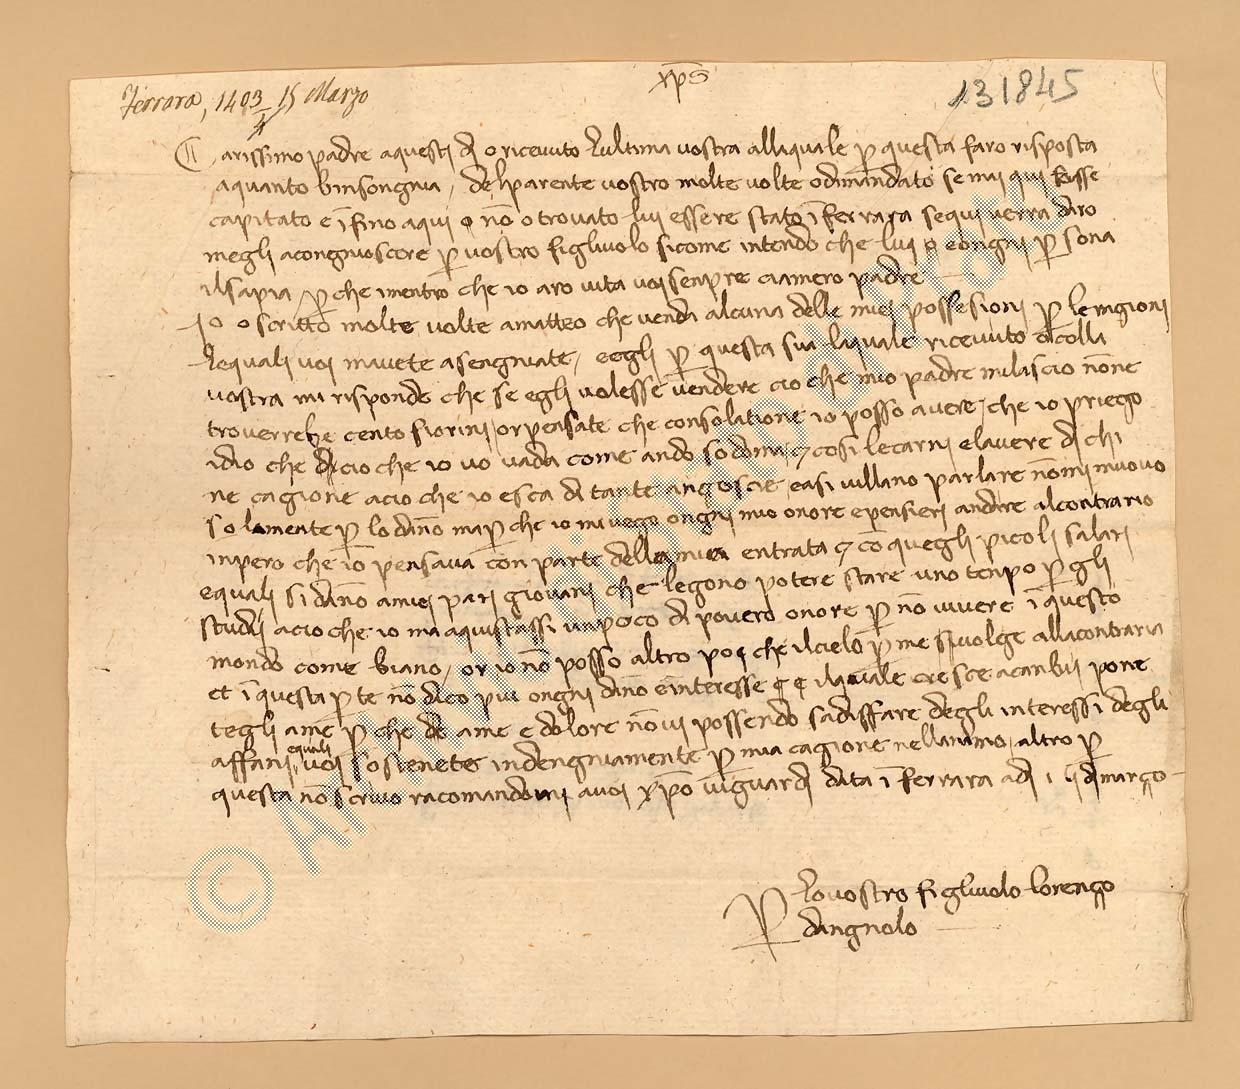 Ferrara, 1403/4 15 Marzo
xp̄s
131845
Carissimo padre aquesti dì o ricevuto lultima vostra allaquale p̄ questa faro risposta
aquanto binsongnia / delparente vostro molte volte o dimandato se mai qui fusse
capitato e ī fino a qui o nō o trovato lui essere stato ī ferrara sequi verra daro
megli acongnioscere p̄ vostro figliuolo sicome intendo che lui o eongni p̄sona
ilsapia p̄ che imentro che io aro vita voi senpre ciamero padre
Io o scritto molte volte amatteo che venda alcuna delle miei possesioni p̄ le ragioni
lequali voi mavete asengniate / eegli p̄ questa sua laquale ricevuto o colla
vostra mi risponde che se egli volesse vendere cio che mio padre milascio nōne
troverrebe cento fiorini / or pensate che consolatione io posso avere / che io priego
idio che di cio che io vo vada come ando sodoma / cosi lecarni elavere di chi
ne cagione acio che io esca di tante angoscie easi villano parlare nōmi muovo
solamente p̄ lo dāno ma p̄ che io mi vego ongni mio onore epensieri andare alcontrario
inpero che io pensava con parte della mia entrata cō quegli picoli salari
equali si dāno amiei pari giovani che legono potere stare uno tenpo p̄ gli
studi acio che io ma aquistassi unpoco di povero onore p̄ nō vivere ī questo
mondo come biano / or io nō posso altro poi che ilcielo p̄ me si volge allacontraria
et ī questa p̄te nō dico piu ongni dāno einteresse ilquale cresce acanbii pone
tegli ame p̄ che de ame e dolore nōvi possendo sadisffare degli interessi degli
affani equali voi sostenete indengniamente p̄ mia cagione nellanimo / altro p̄
questa nō scrivo racomandomi avoi xp̄o viguardi data ī ferrara adi 15 dimarço
P̄ lovostro figliuolo lorenço
dangnolo